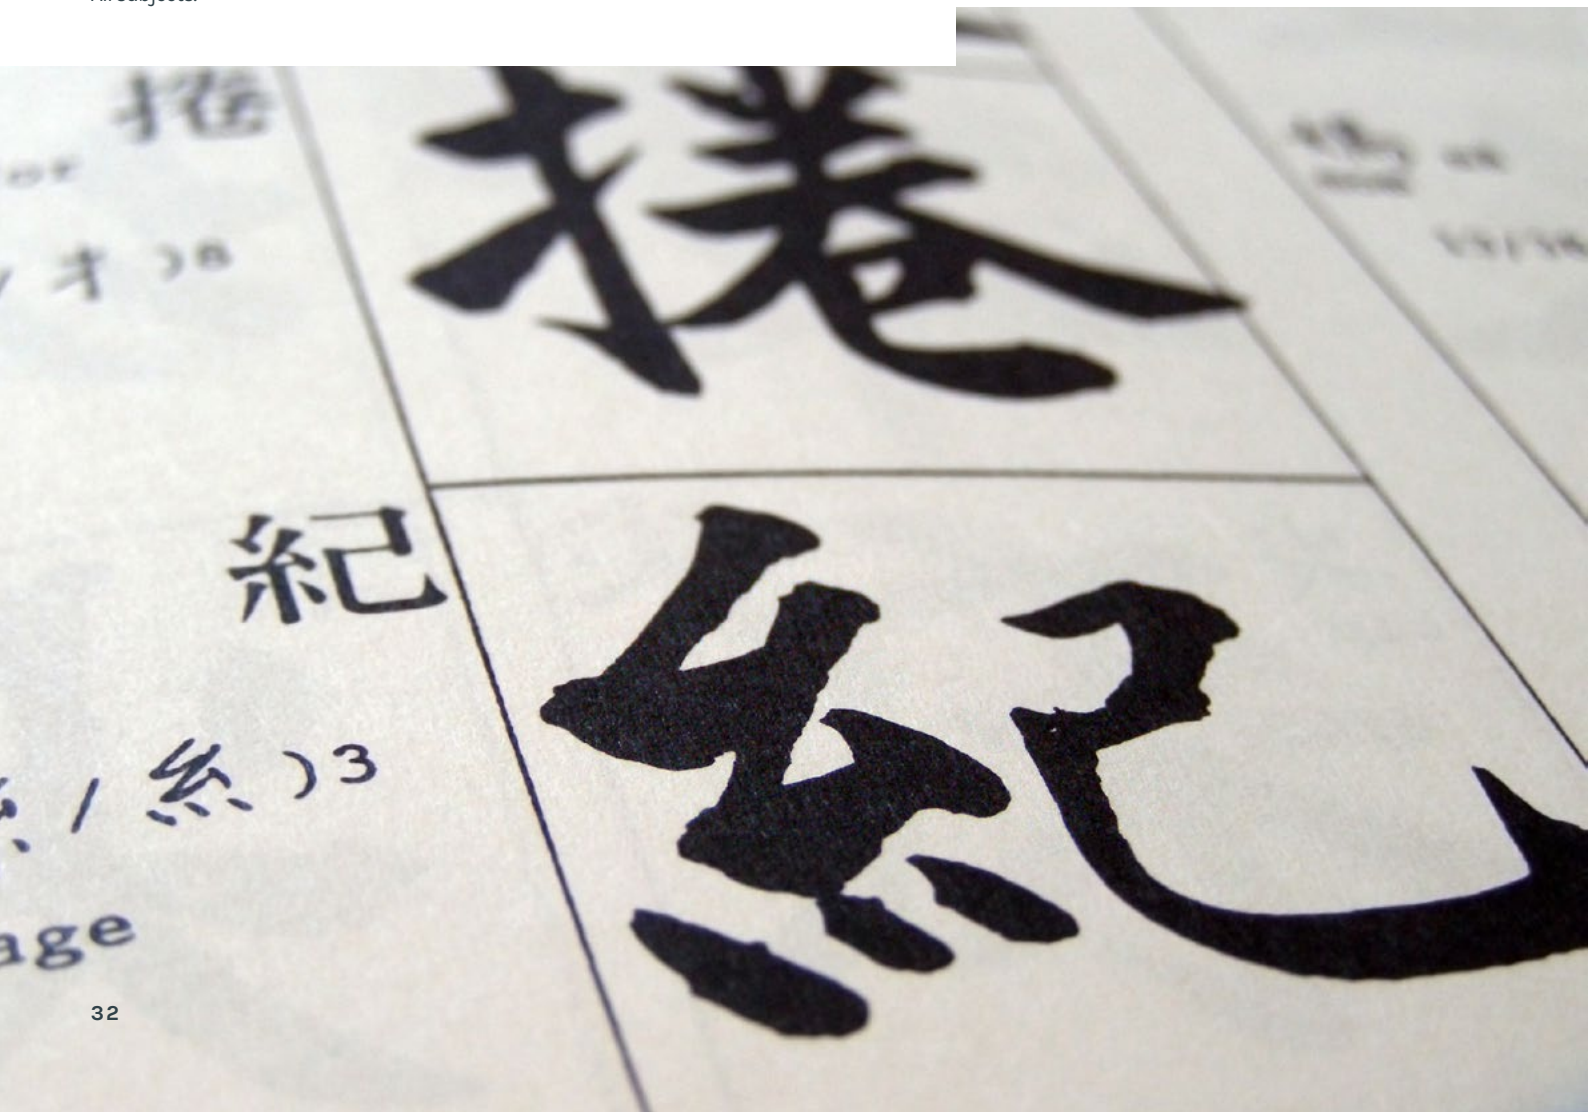 捲
捲
才 )8
紀
紀
/ 糸 )3
age
32